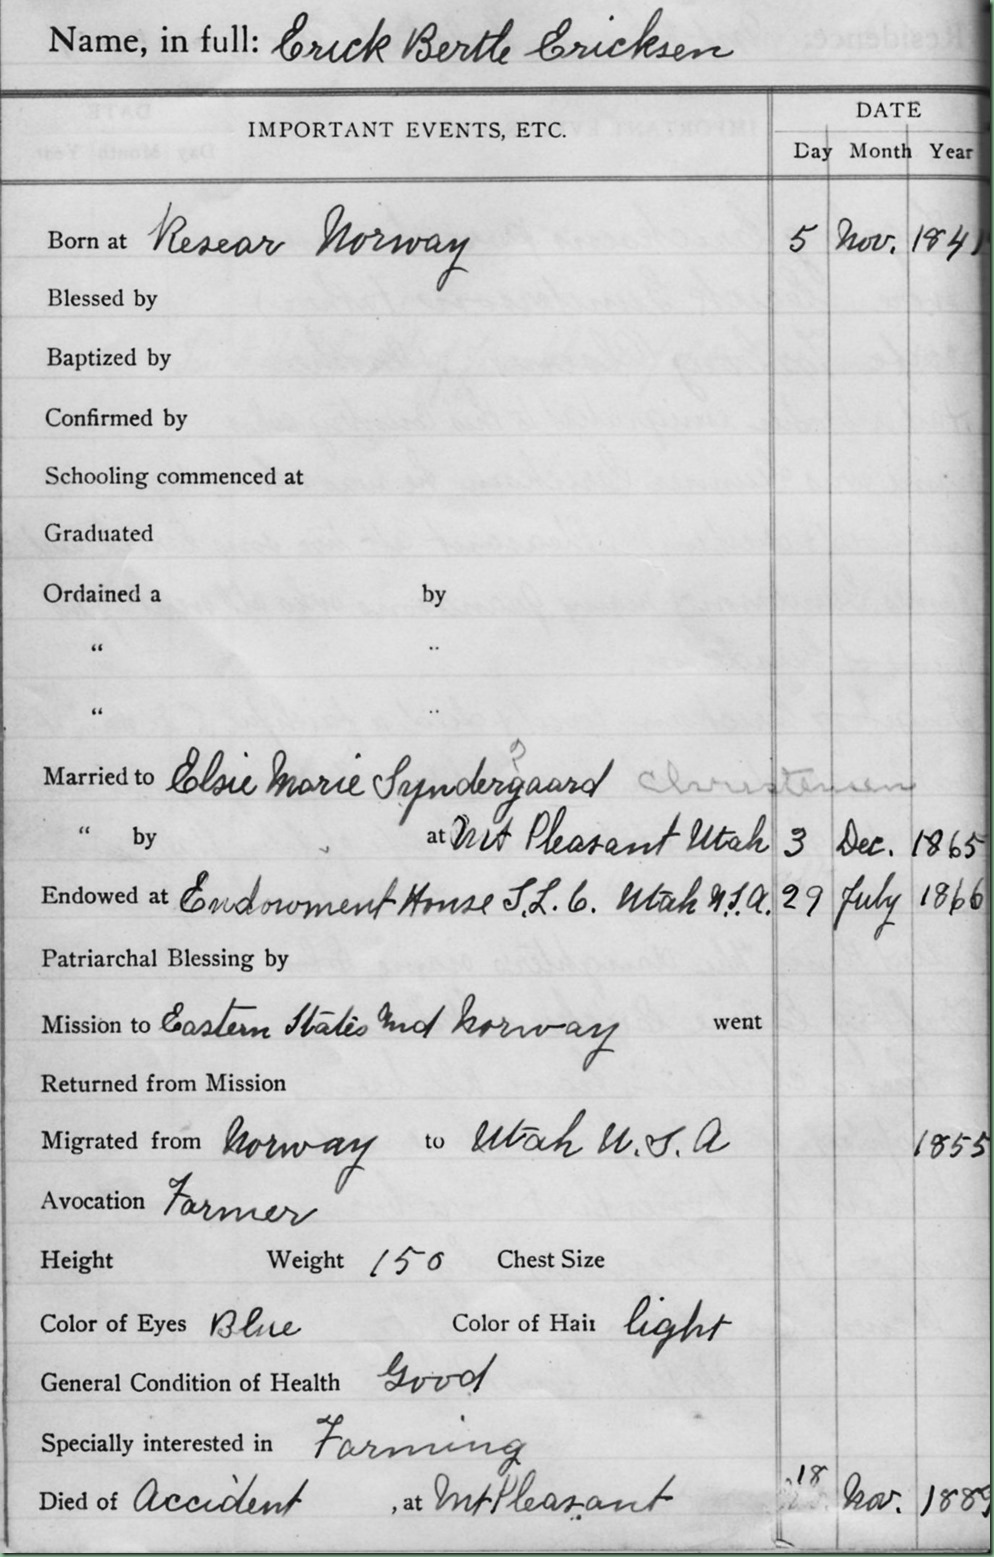 Name, in full: Erick Bertle Ericksen
IMPORTANT EVENTS, ETC.
DATE
Day Month Year
Born at Resear Norway 5 Nov. 1841
Blessed by
Baptized by
Confirmed by
Schooling commenced at
Graduated
Ordained a by
“ ..
“ ..
?
Married to Elsie Marie Syndergaard Christensen
“ by at Mt Pleasant Utah 3 Dec. 1865
Endowed at Endowment House S.L.C. Utah U.S.A. 29 July 1866
Patriarchal Blessing by
Mission to Eastern States And Norway went
Returned from Mission
Migrated from Norway to Utah U.S.A 1855
Avocation Farmer
Height Weight 150 Chest Size
Color of Eyes Blue Color of Hair light
General Condition of Health Good
Specially interested in Farming
Died of Accident , at Mt Pleasant 18 Nov. 1889